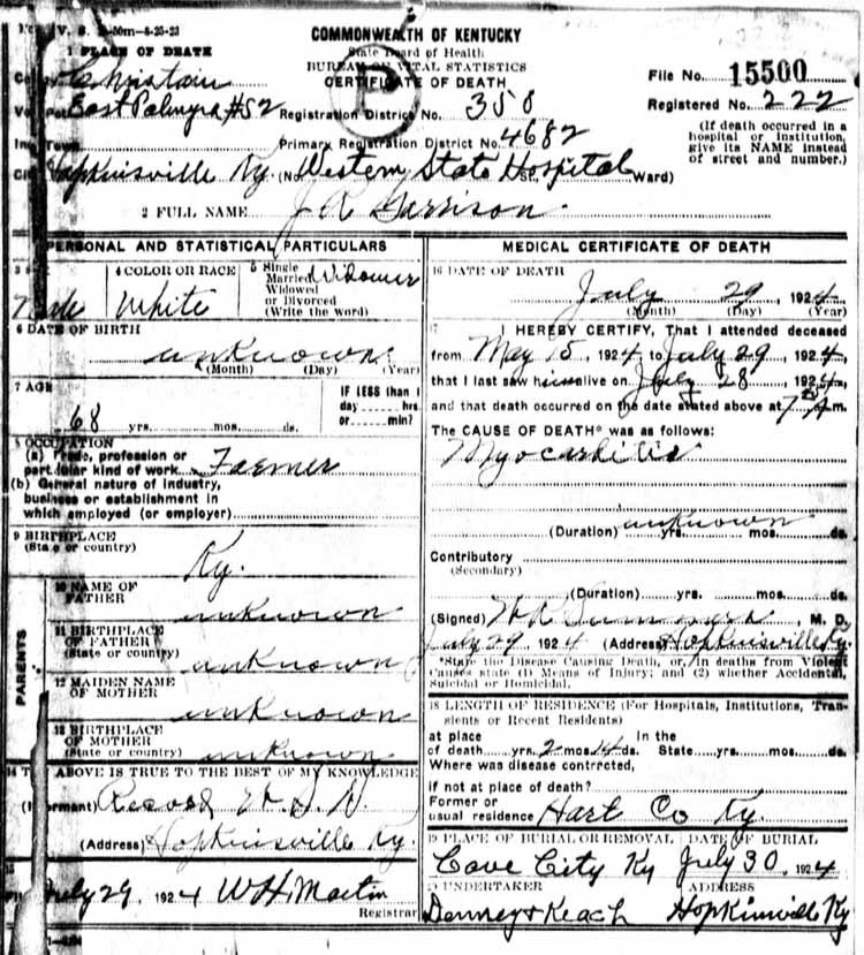 V. S. 50m-8-25-23
COMMONWEALTH OF KENTUCKY
State Board of Health
BUREAU OF VITAL STATISTICS
CERTIFICATE OF DEATH
1 PLACE OF DEATH
File No. 15500
Christain
East Palmyra #52 Registration District No. 350
Registered No. 222
Primary Registration District No. 4682
(If death occurred in a hospital or institution, give its NAME instead of street and number.)
Hopkinsville Ky. (No. Western State Hospital St., Ward)
2 FULL NAME J R Garrison
PERSONAL AND STATISTICAL PARTICULARS
3 SEX Male
4 COLOR OR RACE White
5 Single Married Widowed or Divorced (Write the word) Widower
6 DATE OF BIRTH
unknown
(Month) (Day) (Year)
7 AGE
68 yrs. mos. ds.
IF LESS than 1 day hrs. or min?
8 OCCUPATION
(a) Trade, profession or
particular kind of work Farmer
(b) General nature of industry,
business or establishment in
which employed (or employer)
9 BIRTHPLACE
(State or country) Ky.
10 NAME OF
FATHER unknown
11 BIRTHPLACE
OF FATHER
(State or country) unknown
12 MAIDEN NAME
OF MOTHER unknown
13 BIRTHPLACE
OF MOTHER
(State or country) unknown
PARENTS
14 THE ABOVE IS TRUE TO THE BEST OF MY KNOWLEDGE
(Informant) Record
(Address) Hopkinsville Ky.
15
July 29, 1924 W H Martin
Registrar
MEDICAL CERTIFICATE OF DEATH
16 DATE OF DEATH
July 29, 1924
(Month) (Day) (Year)
17 I HEREBY CERTIFY, That I attended deceased
from May 15, 1924, to July 29, 1924,
that I last saw him alive on July 28, 1924,
and that death occurred on the date stated above at 7 A m.
The CAUSE OF DEATH* was as follows:
Myocarditis
(Duration) unknown yrs. mos. ds.
Contributory
(Secondary)
(Duration) yrs. mos. ds.
(Signed) M. D.
July 29, 1924 (Address) Hopkinsville Ky.
*State the Disease Causing Death, or, in deaths from Violent
Causes state (1) Means of Injury; and (2) whether Accidental,
Suicidal or Homicidal.
18 LENGTH OF RESIDENCE (For Hospitals, Institutions, Tran-
sients or Recent Residents)
at place In the
of death yrs. 2 mos. 14 ds. State yrs. mos. ds.
Where was disease contrected,
if not at place of death?
Former or
usual residence Hart Co Ky.
19 PLACE OF BURIAL OR REMOVAL DATE OF BURIAL
Cave City Ky July 30, 1924
20 UNDERTAKER ADDRESS
Hopkinsville Ky